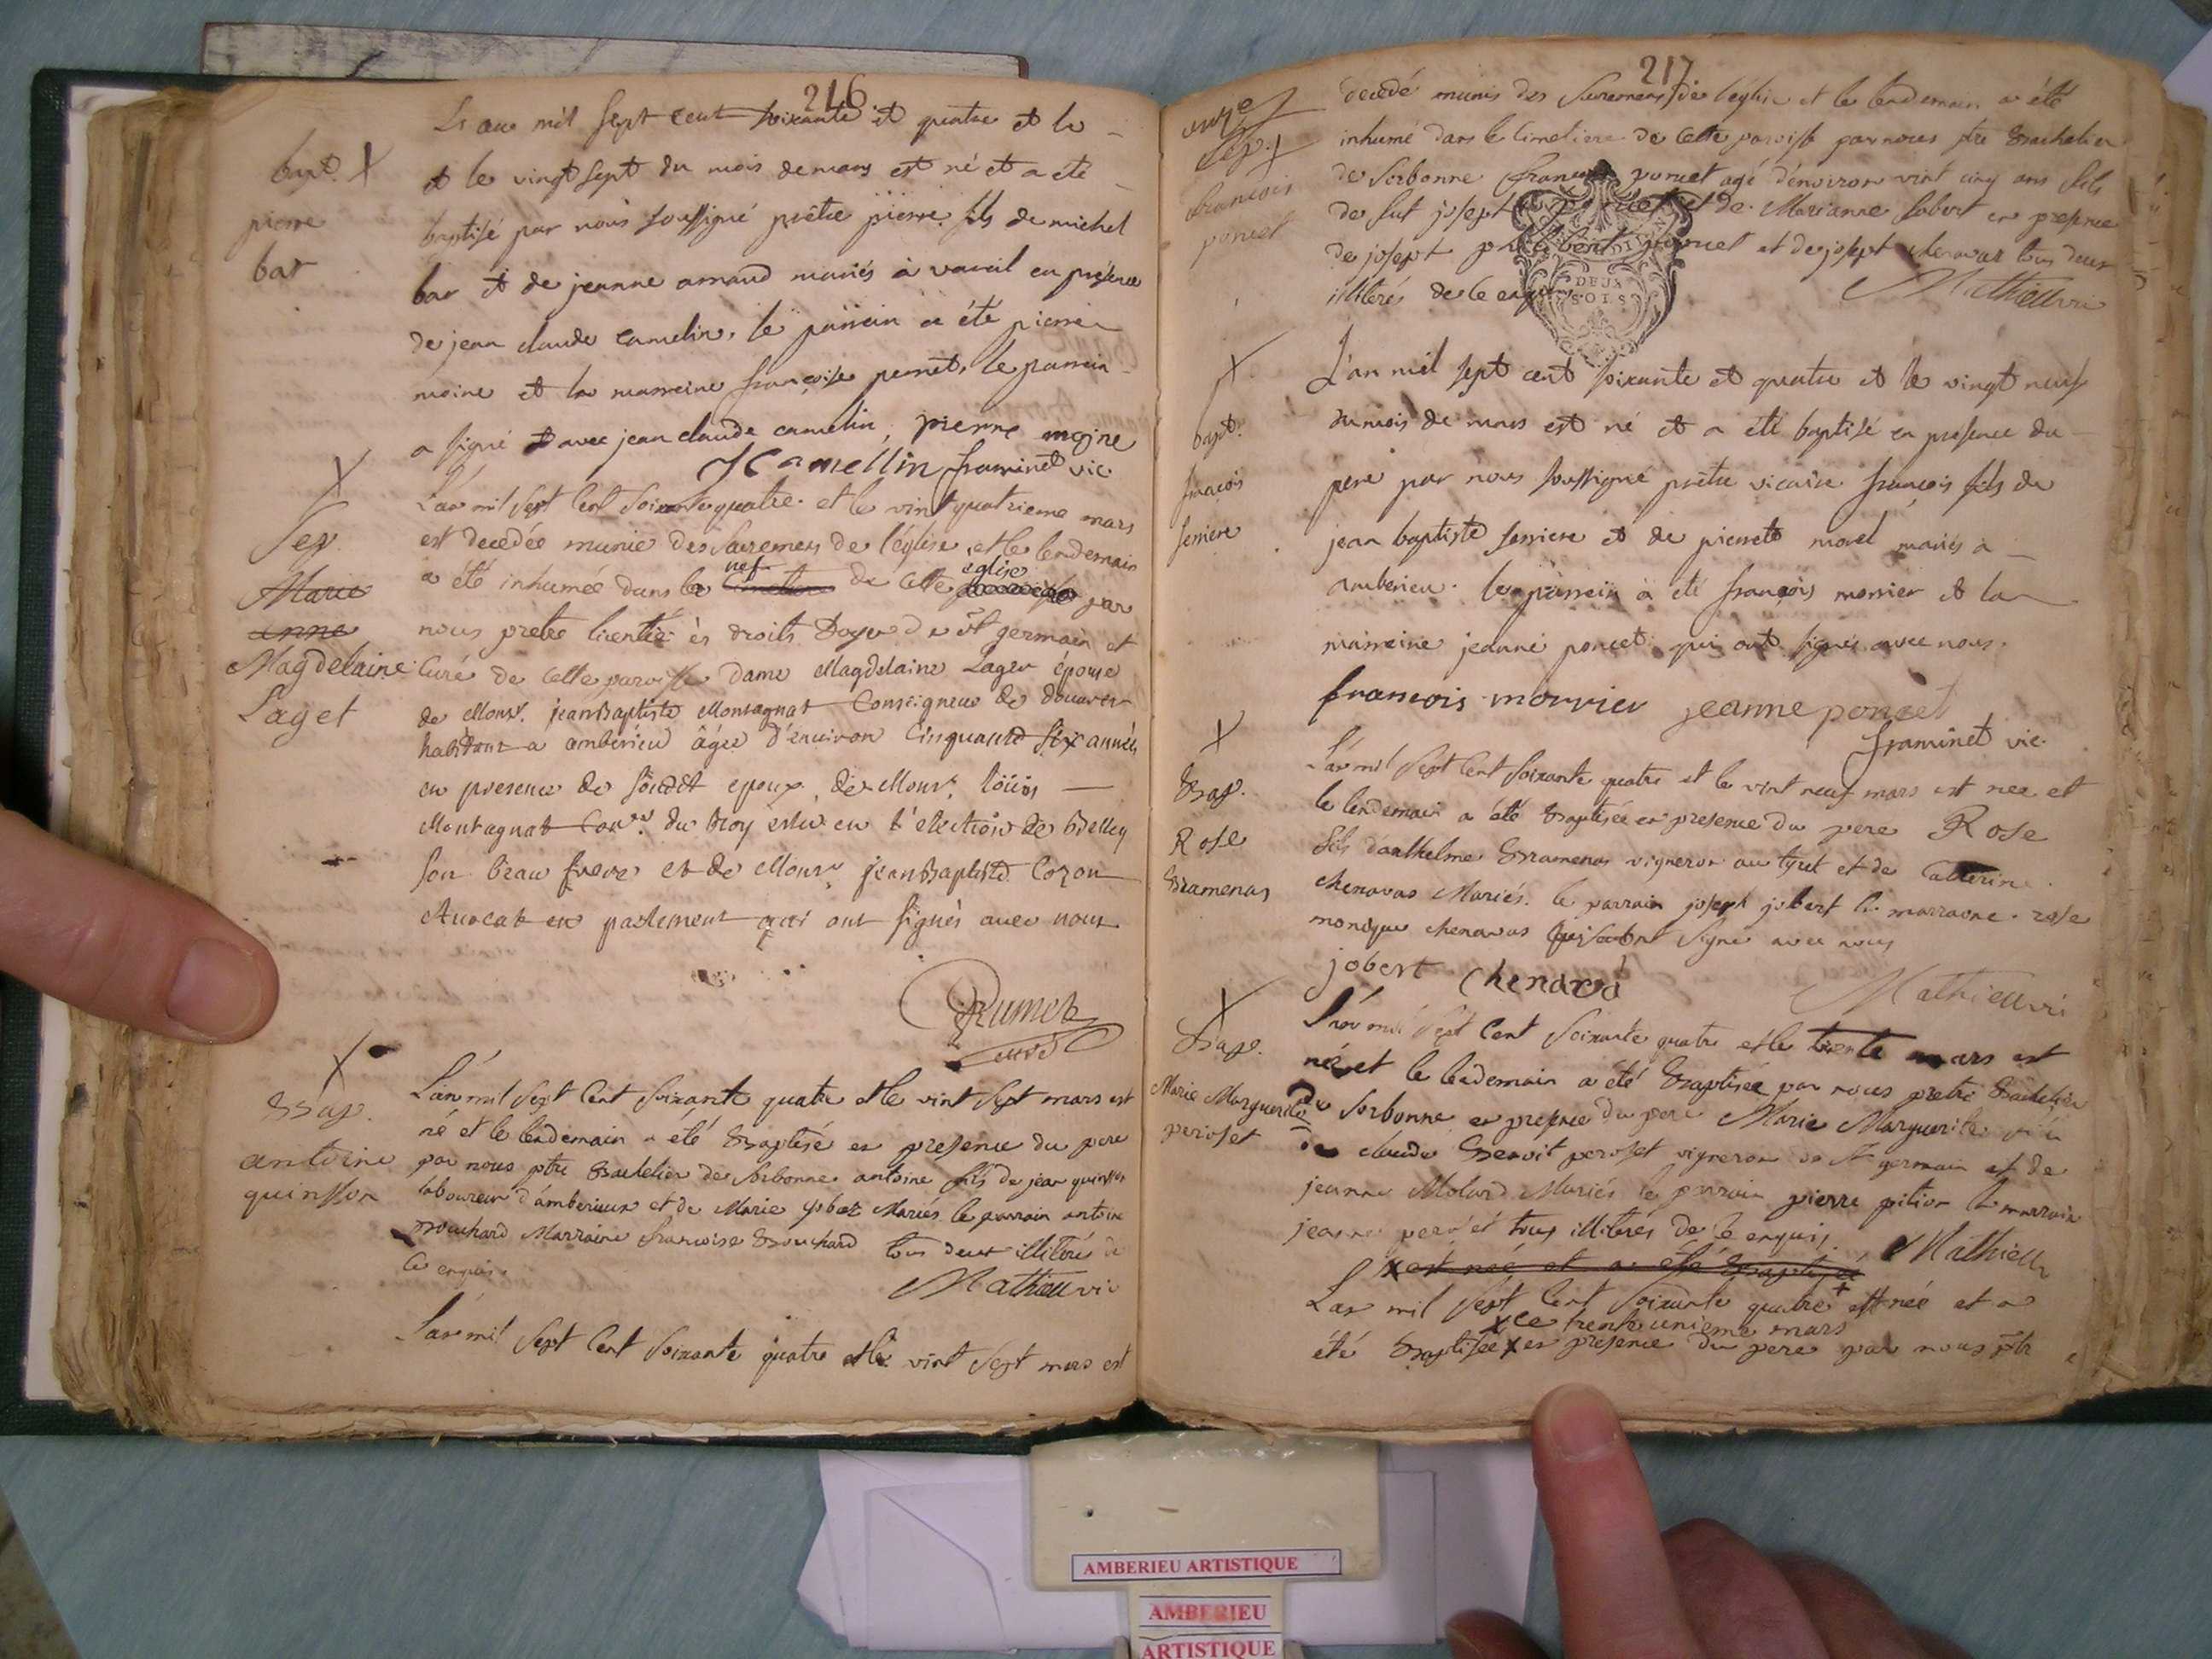 216
bapt. X
pierre
bar
L'an mil sept cent soixante et quatre et le
et le vingt sept du mois de mars est né et a été
baptisé par nous soussigné prêtre pierre fils de michel
bar et de jeanne arnaud mariés à vareil en présence
de jean claude camelin, le parrein a été pierre
moine et la marreine françoise pernet, le parrein
a signé et avec jean claude camelin, pierre moine
JCamellin framinet vic.
X
Sep.
Marie
anne
Magdelaine
Laget
L'an mil sept cent soixante quatre et le vint quatrieme mars
est decedée munie des sacremens de l'église, et le lendemain
nef église
a été inhumée dans la de cette par
nous pretre licentié ès droits Doyen de st germain et
Curé de cette paroisse dame Magdelaine Laget épouse
de Monsr. jean Baptiste Montagnat Conseigneur de douvres
habitant a ambérieu âgée d'environ Cinquante six années
en presence de sondit epoux, de Monsr. loüis
Montagnat Conr. du Roy eslu en l'election de Belley
son beau frere et de Monsr. jean Baptiste Cozon
Avocat en parlement qui ont signés avec nous
curé
X
Bap.
antoine
quinsson
L'an mil sept cent soixante quatre et le vint sept mars est
né et le lendemain a été Baptisé en presence du pere
par nous ptre Bachelier de Sorbonne antoine fils de jean quinsson
laboureur d'amberieux et de Marie jobert Mariés le parrain antoine
Bouchard Marraine francoise Bouchard tous deux illiterés de
ce enquis.
Mathieu vic
L'an mil sept cent soixante quatre et le vint sept mars est
217
Sep. X
francois
poncet
decedé munis des sacremens de l'église et le lendemain a été
inhumé dans le cimetiere de cette paroisse par nous ptre Bachelier
de Sorbonne francois poncet agé d'environ vint cinq ans fils
de fut joseph poncet et de Marianne jobert en presence
de joseph poncet et de joseph chenavas tous deux
illiterés de ce enquis.
DEUX
SOLS
Mathieu vic
X
bapt.
françois
serriere
L'an mil sept cent soixante et quatre et le vingt neuf
du mois de mars est né et a été baptisé en présence du
pere par nous soussigné prêtre vicaire françois fils de
jean baptiste serriere et de pierrete morel mariés a
amberieu. le parrein a été françois morrier et la
marreine jeanne poncet qui ont signés avec nous.
francois morrier jeanne poncet
framinet vic.
X
Bap.
Rose
Bramenas
L'an mil sept cent soixante quatre et le vint neuf mars est née et
le lendemain a été Baptisée en presence du pere Rose
fils d'anthelme Bramenas vigneron au tiret et de Catterine
chenavas Mariés. le parrain joseph jobert la marraine rose
monique chenavas qui ont signé avec nous
jobert Chenava
Mathieu vic
X
Bap.
Marie Marguerite
peroset
L'an mil sept cent soixante quatre et le trente mars est
née et le lendemain a été Baptisée par nous pretre Bachelier
de Sorbonne en presence du pere Marie Marguerite
de claude Benoit peroset vigneron de st germain et de
jeanne Molard Mariés le parrain pierre pition la marraine
jeanne tous illiterés de ce enquis.
Mathieu
X est née et a été Baptisée
L'an mil sept cent soixante quatre + est née et a
x ce trente unieme mars
été Baptisée x en presence du pere par nous ptr
AMBERIEU ARTISTIQUE
AMBERIEU
ARTISTIQUE